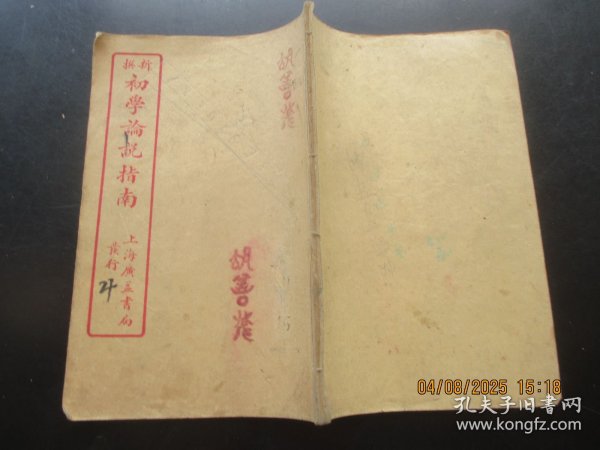 新撰
初學論說指南
上海廣益書局
發行
胡善
胡善
04/08/2025 15:18
孔夫子旧书网
www.kongfz.com